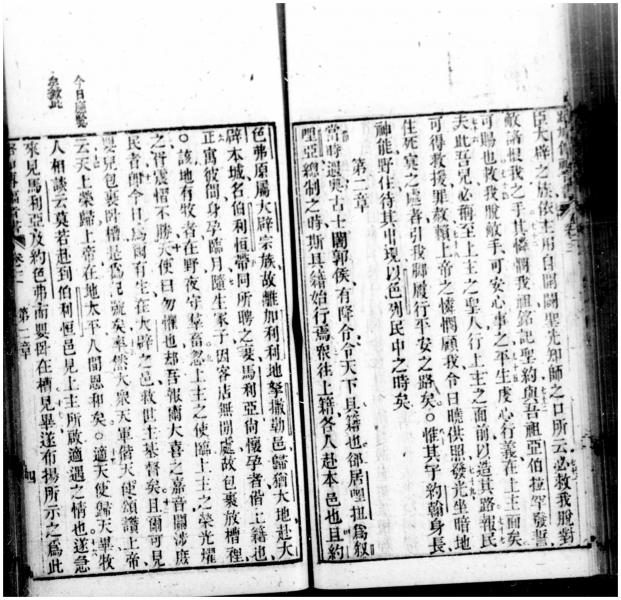 臣大辟之族依主用自開闢聖先知師之口所云必救我脫對
敵諸恨我之手其憐憫我祖銘記聖約與吾祖亞伯拉罕發誓
可賜也救我脫敵手可安心事之平生虔心行義在上主面矣
夫此吾兒必稱至上主之聖人行上主之面前以造其路報民
可得救援罪赦賴上帝之憐憫顧我令日曉供照發光坐暗地
住死之處者引我脚履行平安之路矣。惟其子約翰身長
神能野住待其出現以色列民中之時矣
第二章
當時遜奧古士闍郭侯有降令令天下具籍也郤居哩扭為叙
哩亞總制之時斯具籍始行焉衆往上籍各人赴本邑也且約
色弗原屬大辟宗族故離加利利地拏撒勒邑歸猶大地赴大
辟本城名伯利恒帶同所聘之妻馬利亞尚懷孕者偕上籍也
正寓彼間身孕臨月隨生冢子因客店無閒處故包裹放槽裡
。該地有牧者在野夜守羣畜忽上主之使臨上主之榮光燿
之胥震慴不勝天使曰勿懼也却吾報爾大喜之嘉音關涉庶
民者卽今日為爾有生在大辟之邑救世主基督矣且爾可見
嬰兒包裹卧槽是為記號矣率然大衆天軍偕天使頌讚上帝
云天上榮歸上帝在地太平人間恩和矣。適天使歸天畢牧
人相談云莫若赴到伯利恒邑見上主所啟適遇之情也遂急
來見馬利亞及約色弗兩嬰卧在槽見畢遂布揚所示之為此
第二章
四